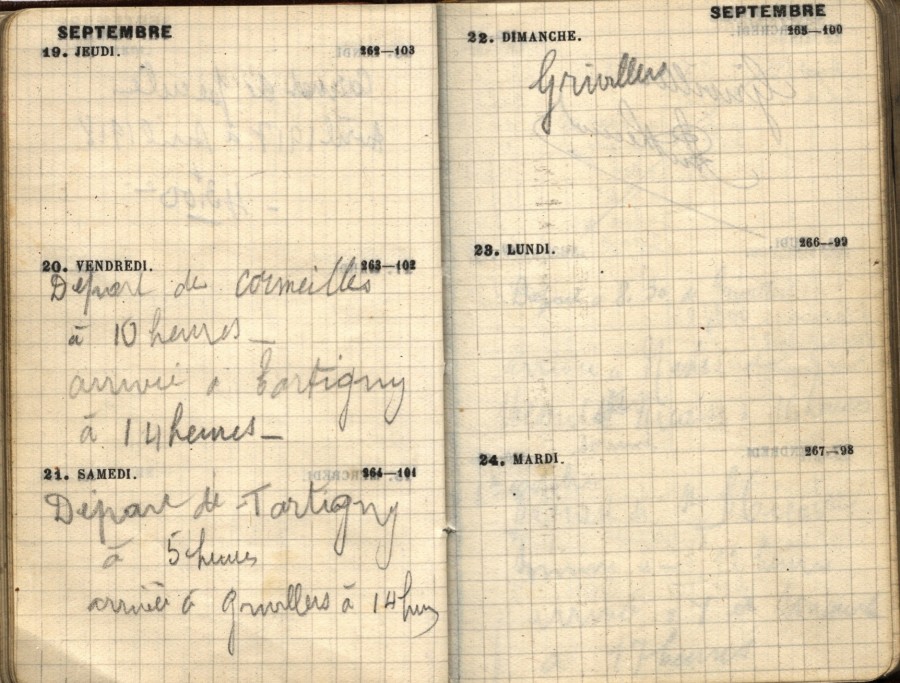 SEPTEMBRE
19. JEUDI. 262—103
20. VENDREDI. 263—102
Départ de Cormeilles
à 10 heures —
arrivée à Tartigny
à 14 heures —
21. SAMEDI. 264—101
Départ de Tartigny
à 5 heures
arrivée à Grivillers à 14 heures
SEPTEMBRE
22. DIMANCHE. 265—100
Grivillers
23. LUNDI. 266—99
24. MARDI. 267—98